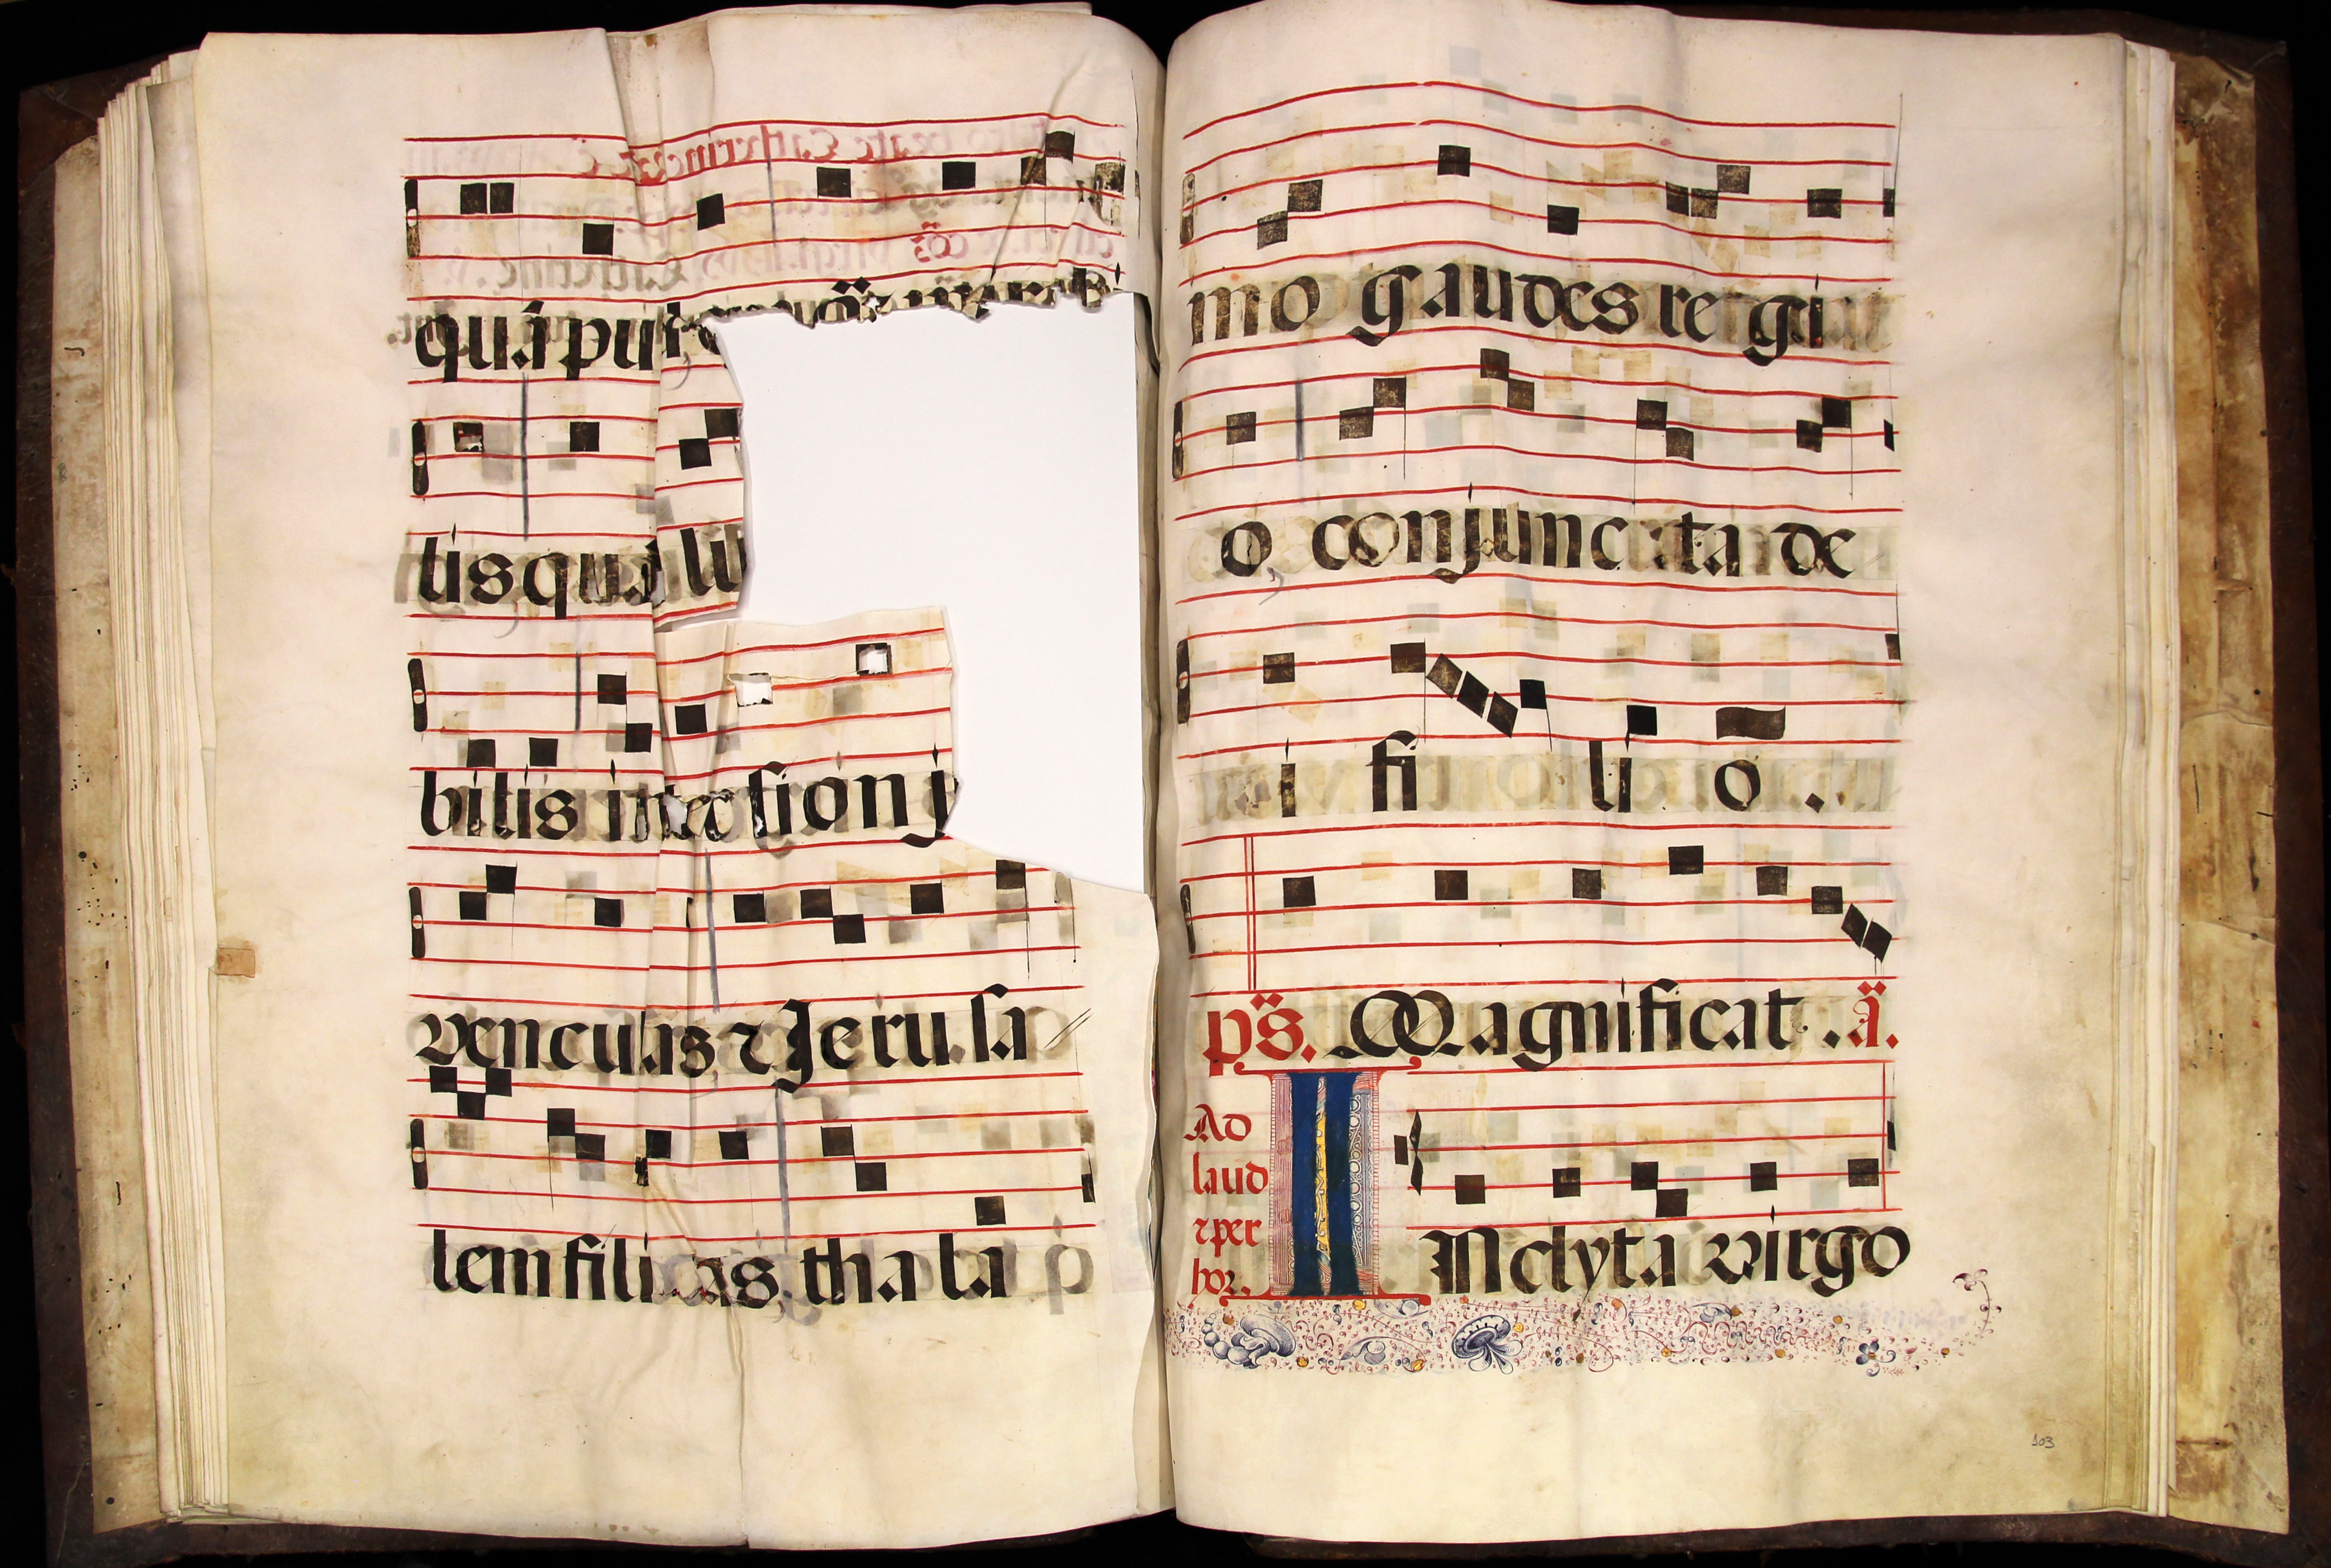 qua pul
tis qua lit
bilis inter sion j
venculas ⁊ Jeru sa
lem filias, tha la
mo gaudes re gi
o, conjunc ta de
i fi li o .
ps. Magnificat . a.
Ad
laud
⁊ per
hor.
INclyta virgo
103